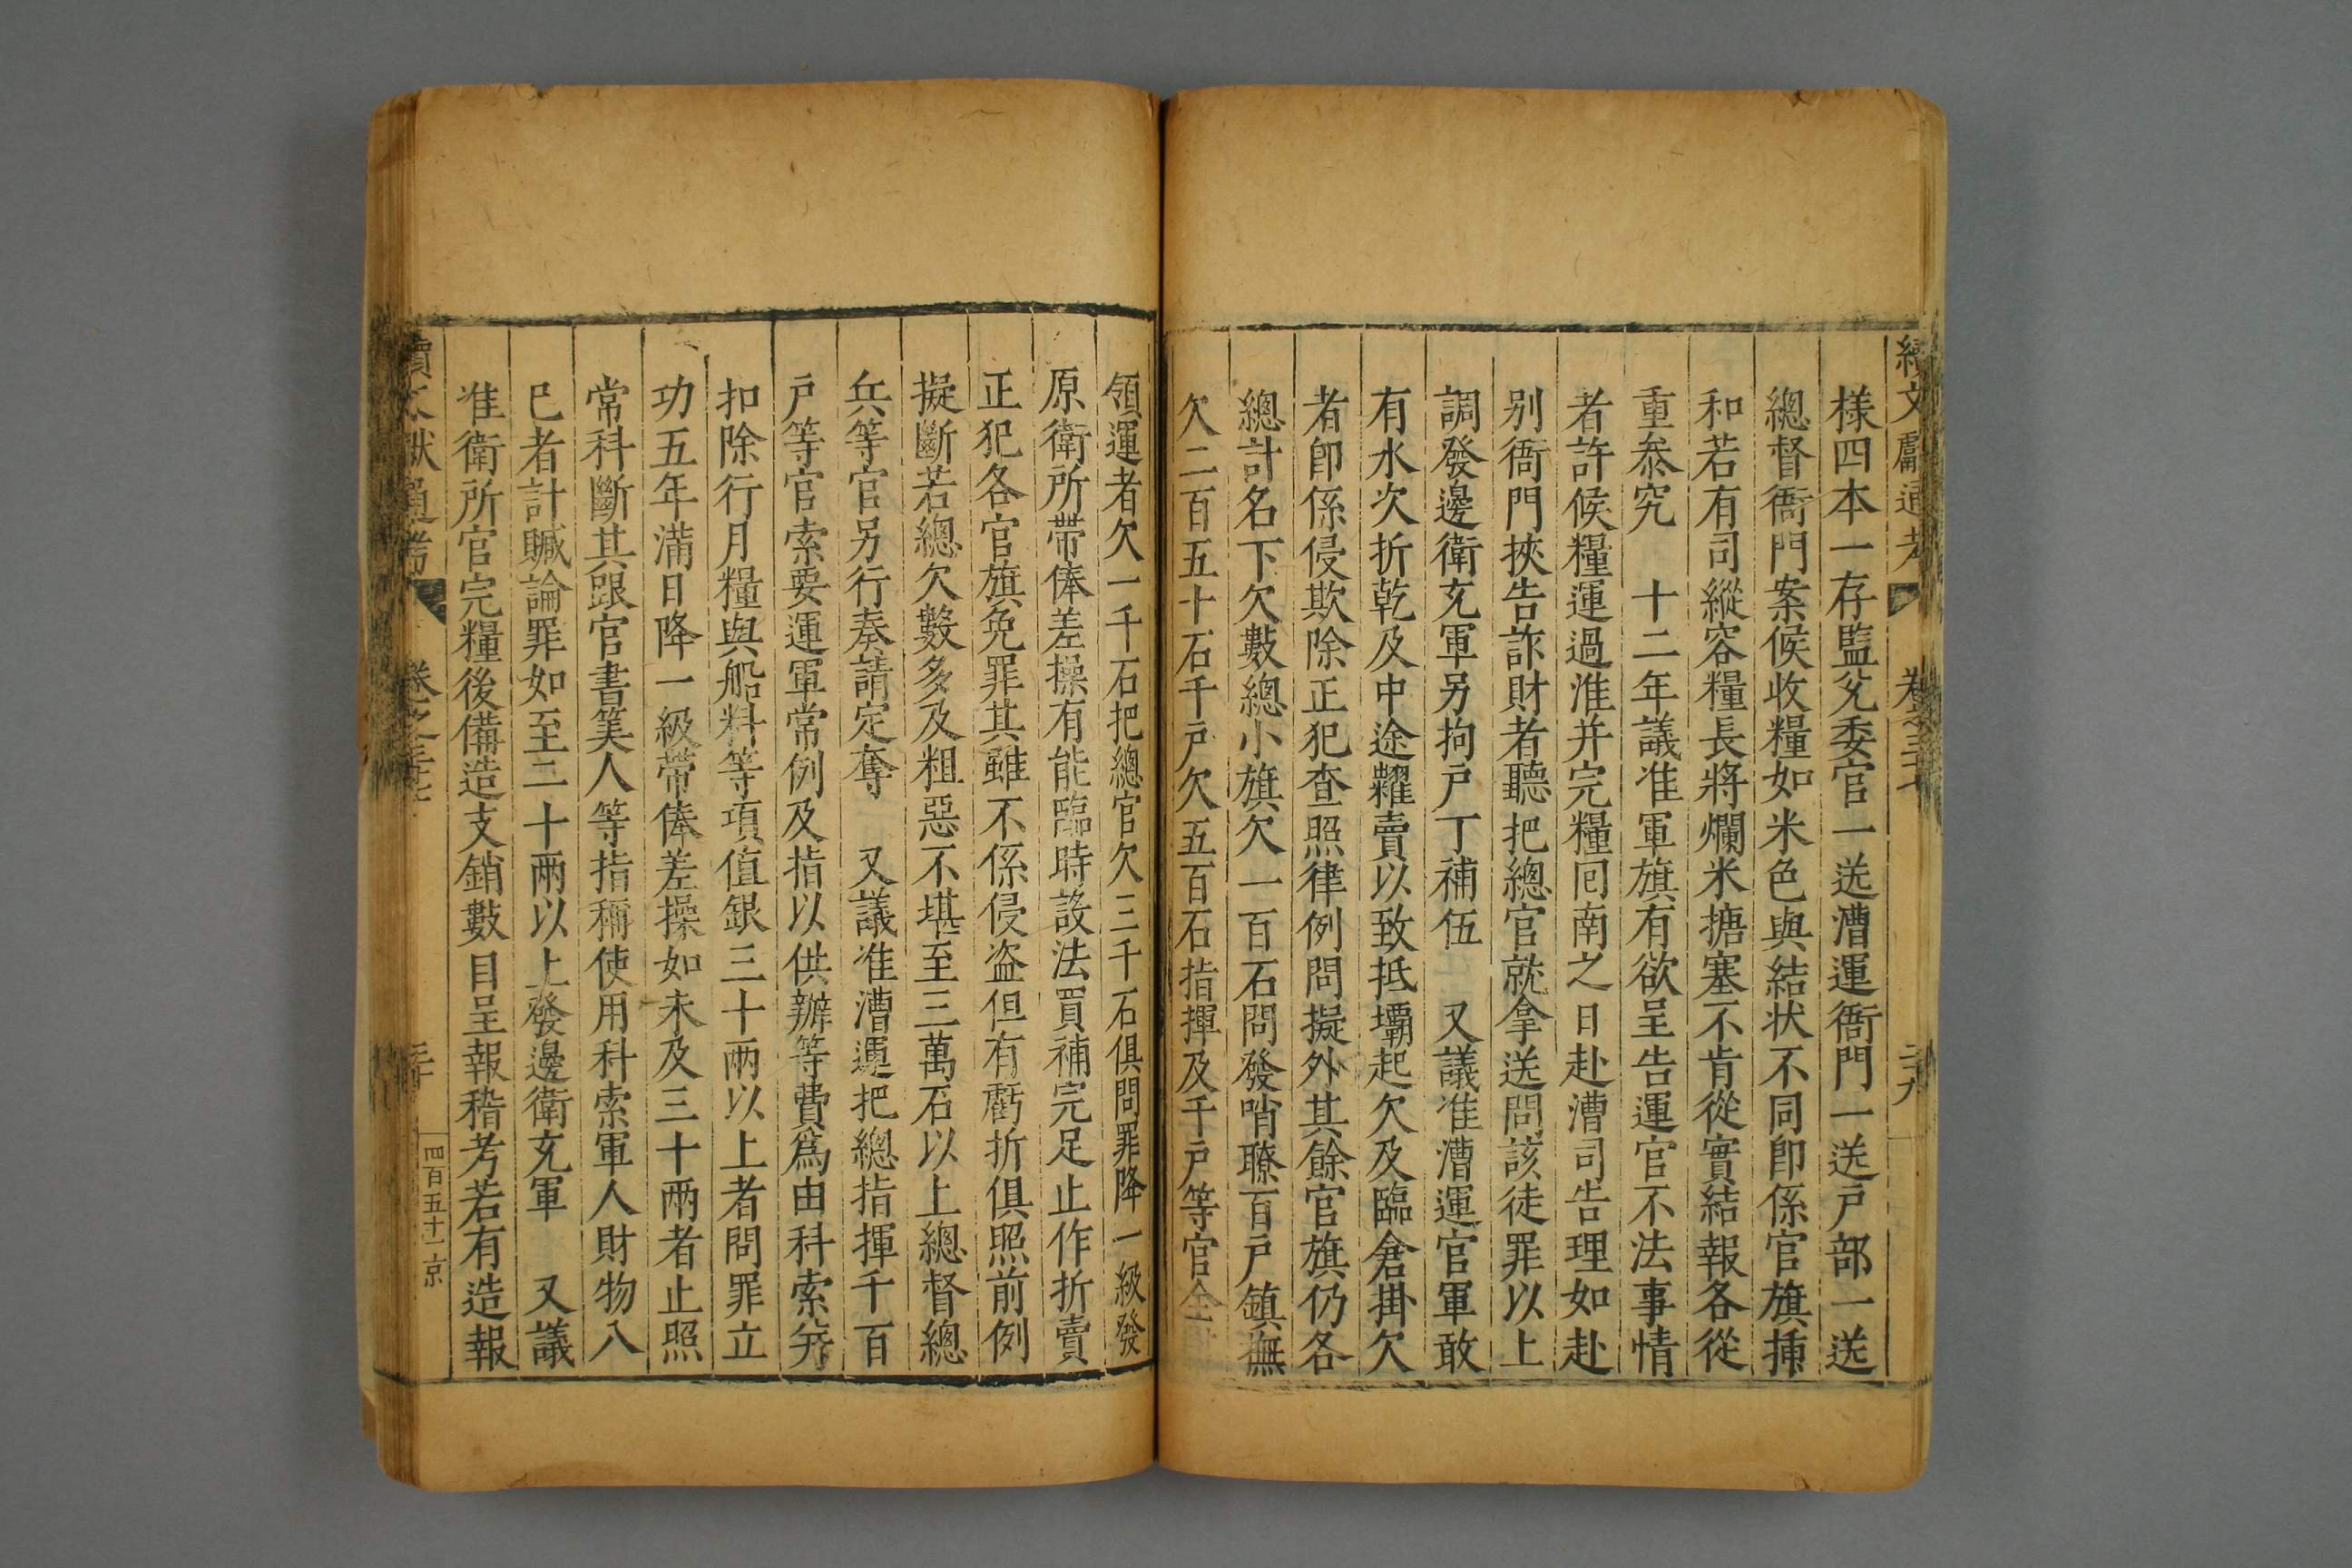 續文獻通考 卷之三十七 二十九
樣四本一存監兌委官一送漕運衙門一送戶部一送
總督衙門案候收糧如米色與結状不同即係官旗揷
和若有司縱容糧長將爛米搪塞不肯從實結報各從
重叅究 十二年議准軍旗有欲呈告運官不法事情
者許候糧運過淮并完糧囘南之日赴漕司告理如赴
别衙門挾告詐財者聽把總官就拿送問該徒罪以上
調發邊衛充軍另拘戶丁補伍 又議准漕運官軍敢
有水次折乾及中途糶賣以致抵壩起欠及臨倉掛欠
者即係侵欺除正犯查照律例問擬外其餘官旗仍各
總計名下欠數總小旗欠一百石問發哨瞭百戶鎮撫
欠二百五十石千戶欠五百石指揮及千戶等官全
領運者欠一千石把總官欠三千石俱問罪降一級發
原衛所帶俸差操有能臨時設法買補完足止作折賣
正犯各官旗免罪其雖不係侵盗但有虧折俱照前例
擬斷若總欠數多及粗惡不堪至三萬石以上總督總
兵等官另行奏請定奪 又議准漕運把總指揮千百
戶等官索要運軍常例及指以供辦等費爲由科索并
扣除行月糧與船料等項值銀三十兩以上者問罪立
功五年滿日降一級帶俸差操如未及三十兩者止照
常科斷其跟官書筭人等指稱使用科索軍人財物入
已者計贓論罪如至二十兩以上發邊衛充軍 又議
准衛所官完糧後備造支銷數目呈報稽考若有造報
續文獻通考 卷之三十七 三十 四百五十一京